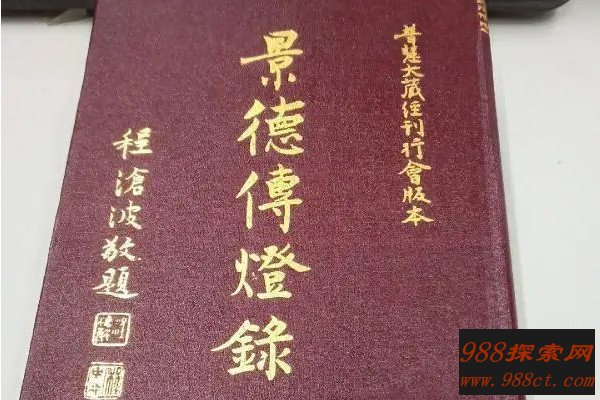 普慧大藏經刊行會版本
景德傳燈錄
程滄波敬題
988探索网
www.988ct.com